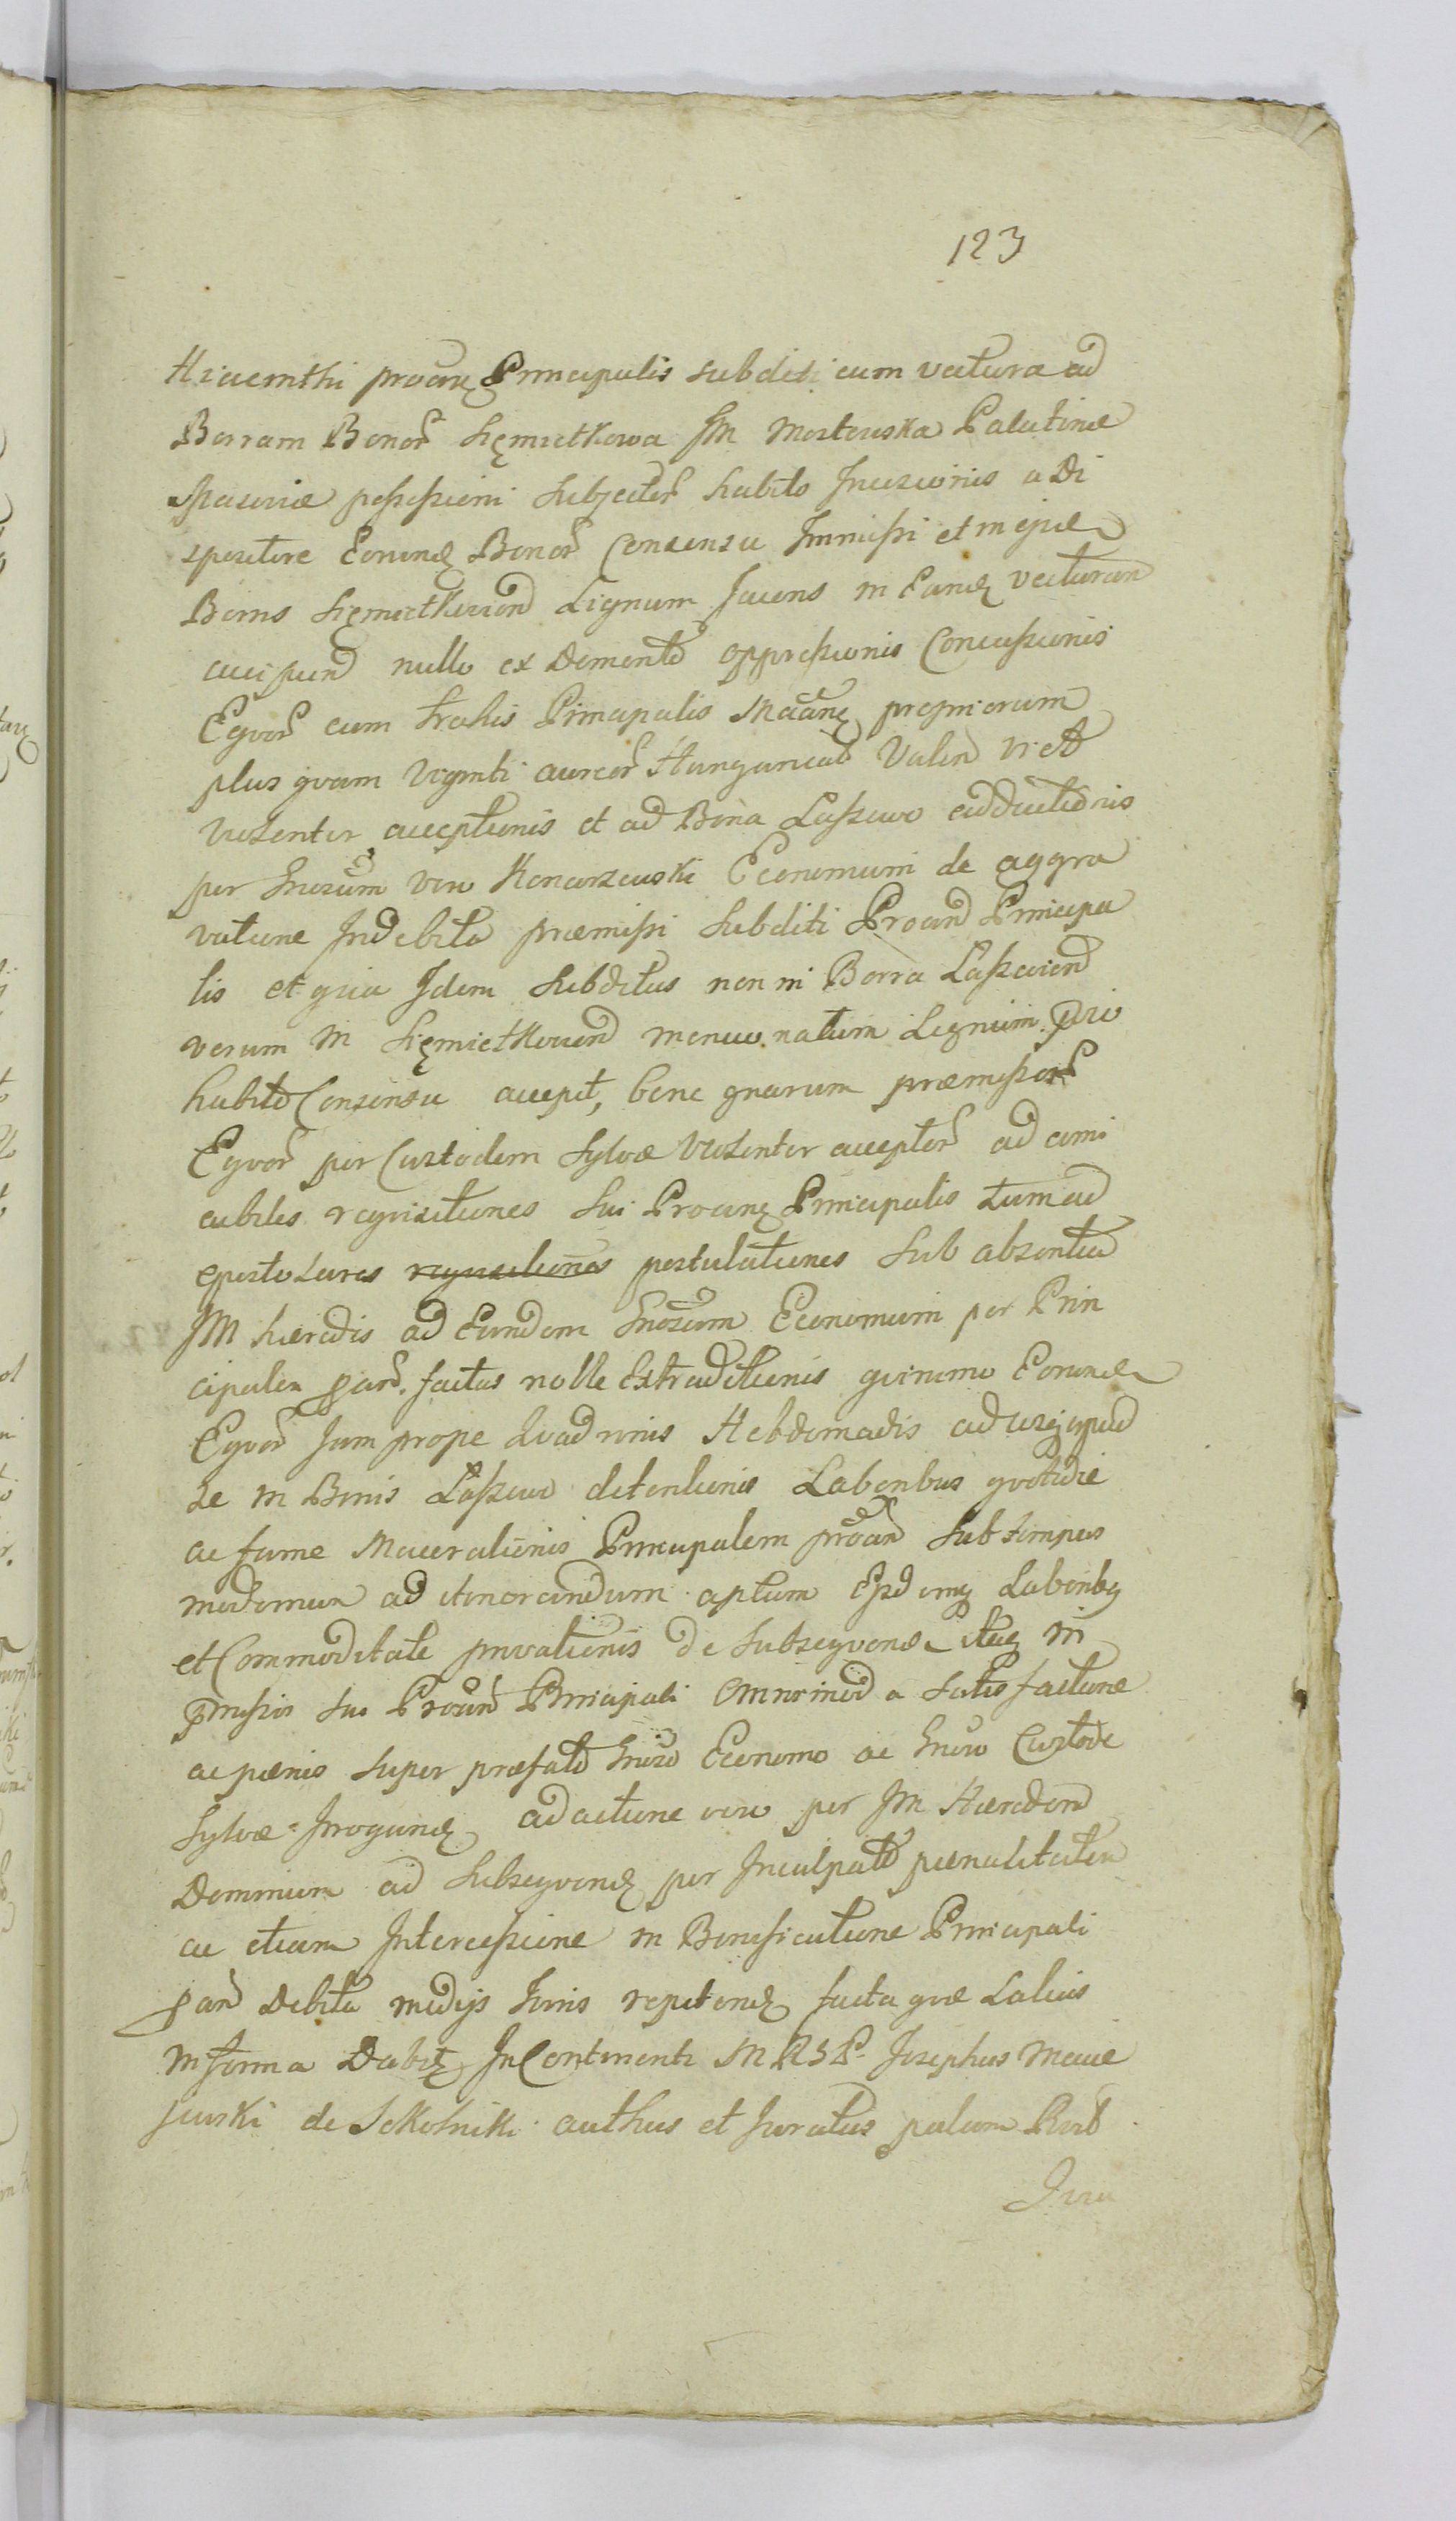 123
Hiacinthi procan Principalis subditi cum vectura ad
Borram Bonor Siemietkowa JM Mostowska Palatinæ
Masoviæ possessioni subjector habito Incursionis a Di
spositore Eorund Bonor Consensu Immissi et in ejusd
Bonis Siemietkovien Lignum Jacens in Eand vecturam
accipiend nullo ex Demento oppressionis Concussionis
Eqvor cum trahis Principalis propriorum
plus qvam viginti aureor Hungarical Valen vi et
violenter acceptionis et ad Bona Laszewo adductionis
per Gnosum vero Konarzewski Economum de aggra
vatione Indebita præmissi Subditi Procand Principa
lis et qvia Idem Subditus non in Borra Laszewiend
verum in Siemietkoviend mencionatum Lignum prio
habito Consensu accepit, bene gnarum præmissor
Eqvor per Custodem Sylvæ violenter acceptor ad ami
cabiles reqvisitiones sui Procand Principalis tum ad
epistolares reqvisitiones postulationes sub absentia
JM hæredis ad Eundem Gnosum Economum per Prin
cipalem factas nolle Extraditionis qvinimo Eorund
Eqvor jam prope Qvadrinis Hebdomadis ad usq apud
se in Bonis Laszewo detentionis Laboribus qvotidie
ac fame Macerationis Principalem procan sub tempus
modernum ad itinerandum aptum Laboribq
et Commoditate privationis de Subseqvend itaq in
præmissis suo Procand Principali Omnimod a Satisfactione
ac pænis super præfato Gnoso Economo ac Gnoso Custode
Sylvæ Irrogand adactione vero per JM Hæredem
Dominum ad Subseqvend per Inculpato pænalitatem
ac etiam Intercessione in Bonificatione Principali
Debita medijs Juris repetend facta qvæ Latius
in forma Dabit InContinenti MRSP Josephus Macie
jewski de Sokolniki authus et juratus palam
Jura